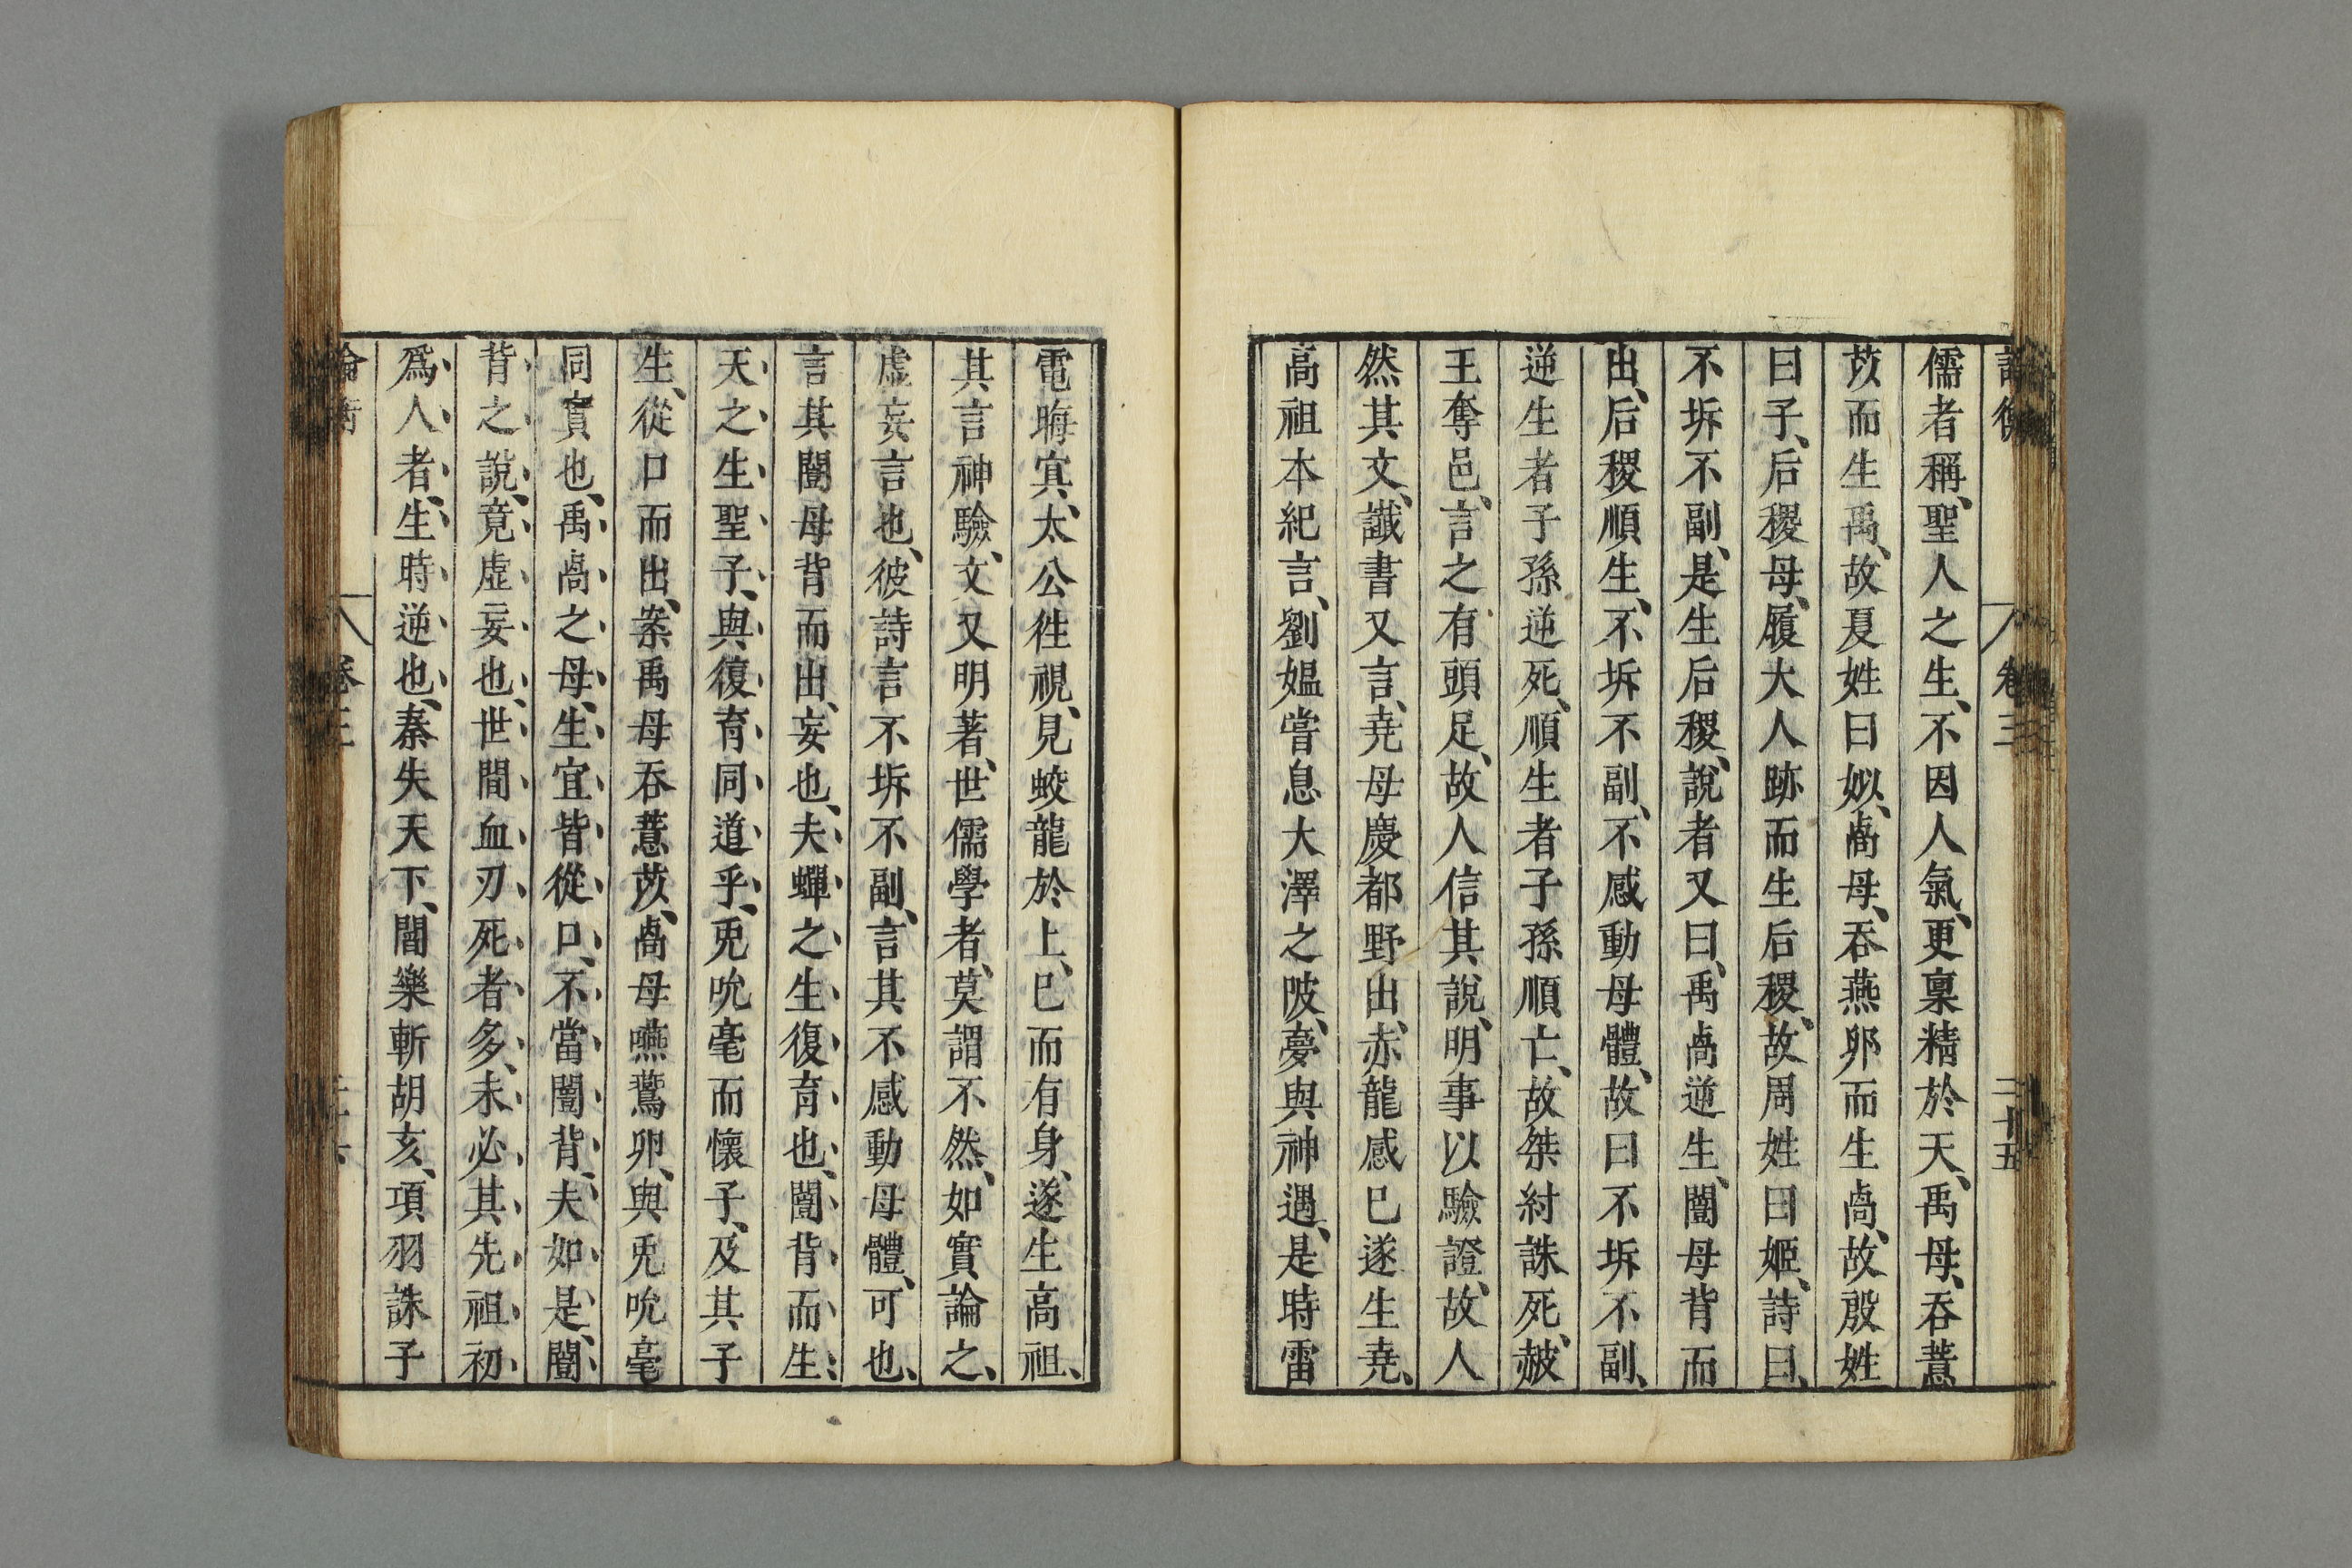 論衡 卷三 二十五
儒者稱、聖人之生、不因人氣、更稟精於天、禹母、吞薏
苡而生禹、故夏姓曰姒、卨母、吞燕卵而生卨、故殷姓
曰子、后稷母、履大人跡而生后稷、故周姓曰姬、詩曰、
不坼不副、是生后稷、說者又曰、禹卨逆生、闓母背而
出、后稷順生、不坼不副、不感動母體、故曰不坼不副、
逆生者子孫逆死、順生者子孫順亡、故桀紂誅死、赧
王奪邑、言之有頭足、故人信其說、明事以驗證、故人
然其文、讖書又言、堯母慶都野出、赤龍感已遂生堯、
高祖本紀言、劉媼嘗息大澤之陂、夢與神遇、是時雷
電晦冥、太公往視、見蛟龍於上、已而有身、遂生高祖、
其言神驗、文又明著、世儒學者、莫謂不然、如實論之、
虛妄言也、彼詩言不坼不副、言其不感動母體、可也、
言其闓母背而出、妄也、夫蟬之生復育也、闓背而生、
天之生聖子、與復育同道乎、兎吮毫而懷子、及其子
生、從口而出、案禹母吞薏苡、卨母嚥鷰卵、與兎吮毫
同實也、禹卨之母、生宜皆從口、不當闓背、夫如是、闓
背之說、竟虛妄也、世間血刃死者多、未必其先祖初
爲人者、生時逆也、秦失天下、閻樂斬胡亥、項羽誅子
論衡 卷三